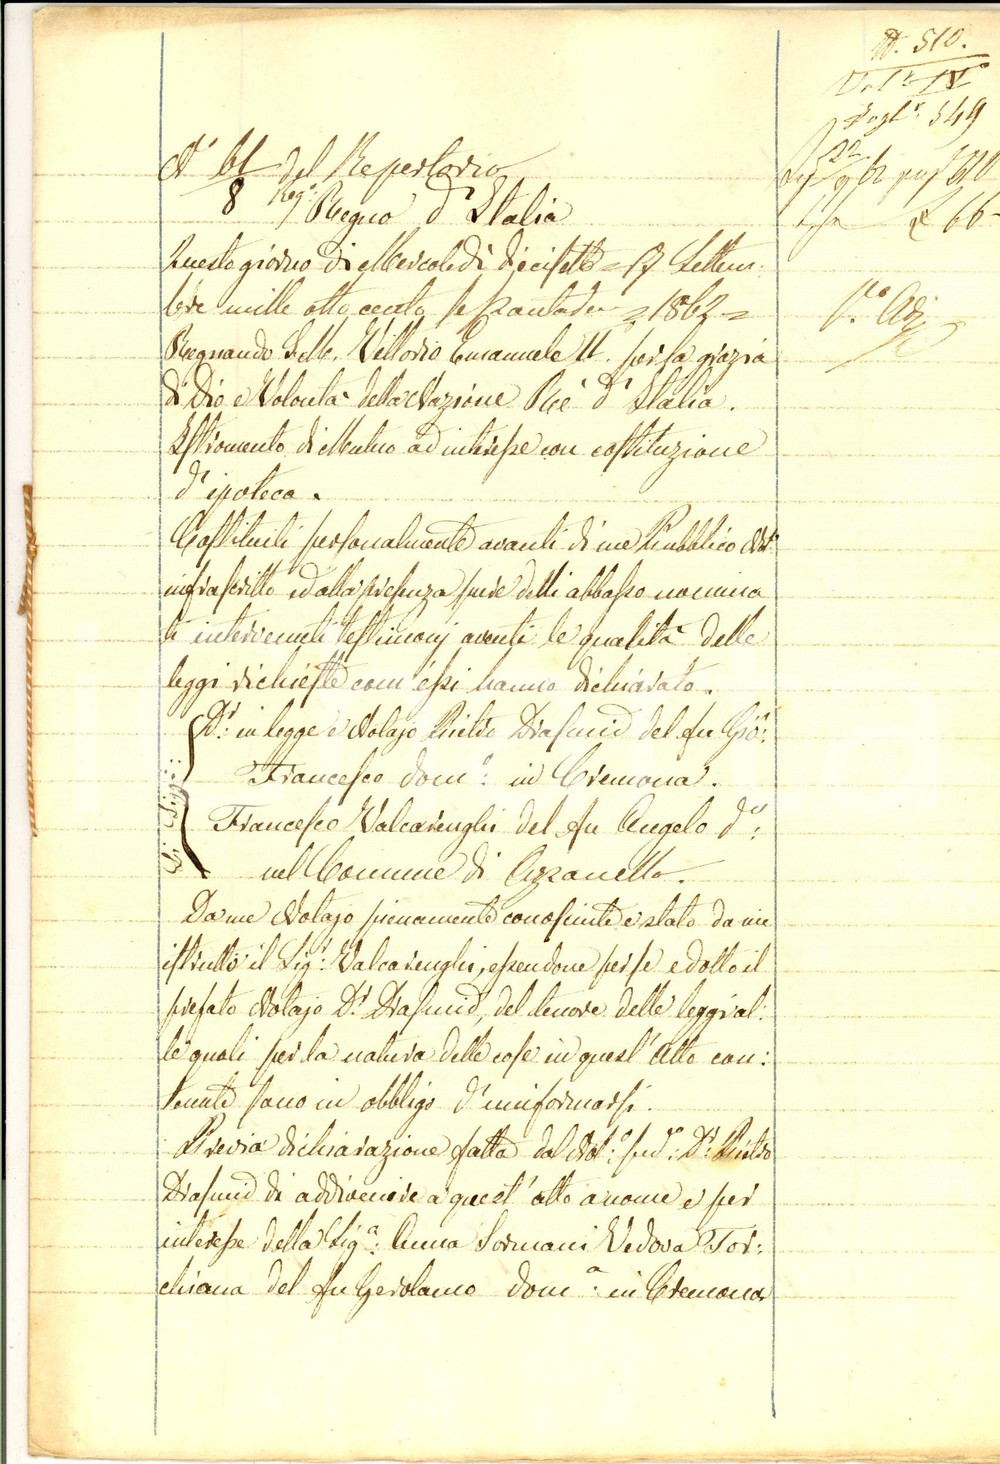 N. 510.
Vol. IV
Fogl. 549
N° 61 del Repertorio
8 Reg°
£ 66-
Regno d'Italia
Questo giorno di Mercoledì diecisette = 17 Settem:
bre mille otto cento sessantadue = 1862 =
V.°
Regnando S. M. Vittorio Emanuele II. per la grazia
di Dio e Volontà della Nazione Rè d'Italia.
Istromento di Mutuo ad interesse con costituzione
d'ipoteca.
Costituiti personalmente avanti di me Pubblico Not.
infrascritto ed alla presenza pure delli abbasso nomina
ti intervenuti testimonj aventi le qualità dalle
leggi richieste com'essi hanno dichiarato.
Li Sigg.:
D.r in legge e Notajo Pietro Trasmid del fu Gio:
Francesco dom.°: in Cremona.
Francesco Valcarenghi del fu Angelo d.°:
nel Comune di Azzanello.
Da me Notajo pienamente conosciuti e stato da me
istrutto il Sig.r: Valcarenghi, essendone per se edotto il
prefato Notajo D.r Trasmid, del tenore delle leggi al:
le quali per la natura delle cose in quest'Atto con:
tenute sono in obbligo d'uniformarsi.
Previa dichiarazione fatta dal Not.°: sud.°: D.r: Pietro
Trasmid di addivenire a quest'atto a nome e per
interesse della Sig.a: Anna Sormani Vedova Tor:
chiana del fu Gerolamo dom.a: in Cremona